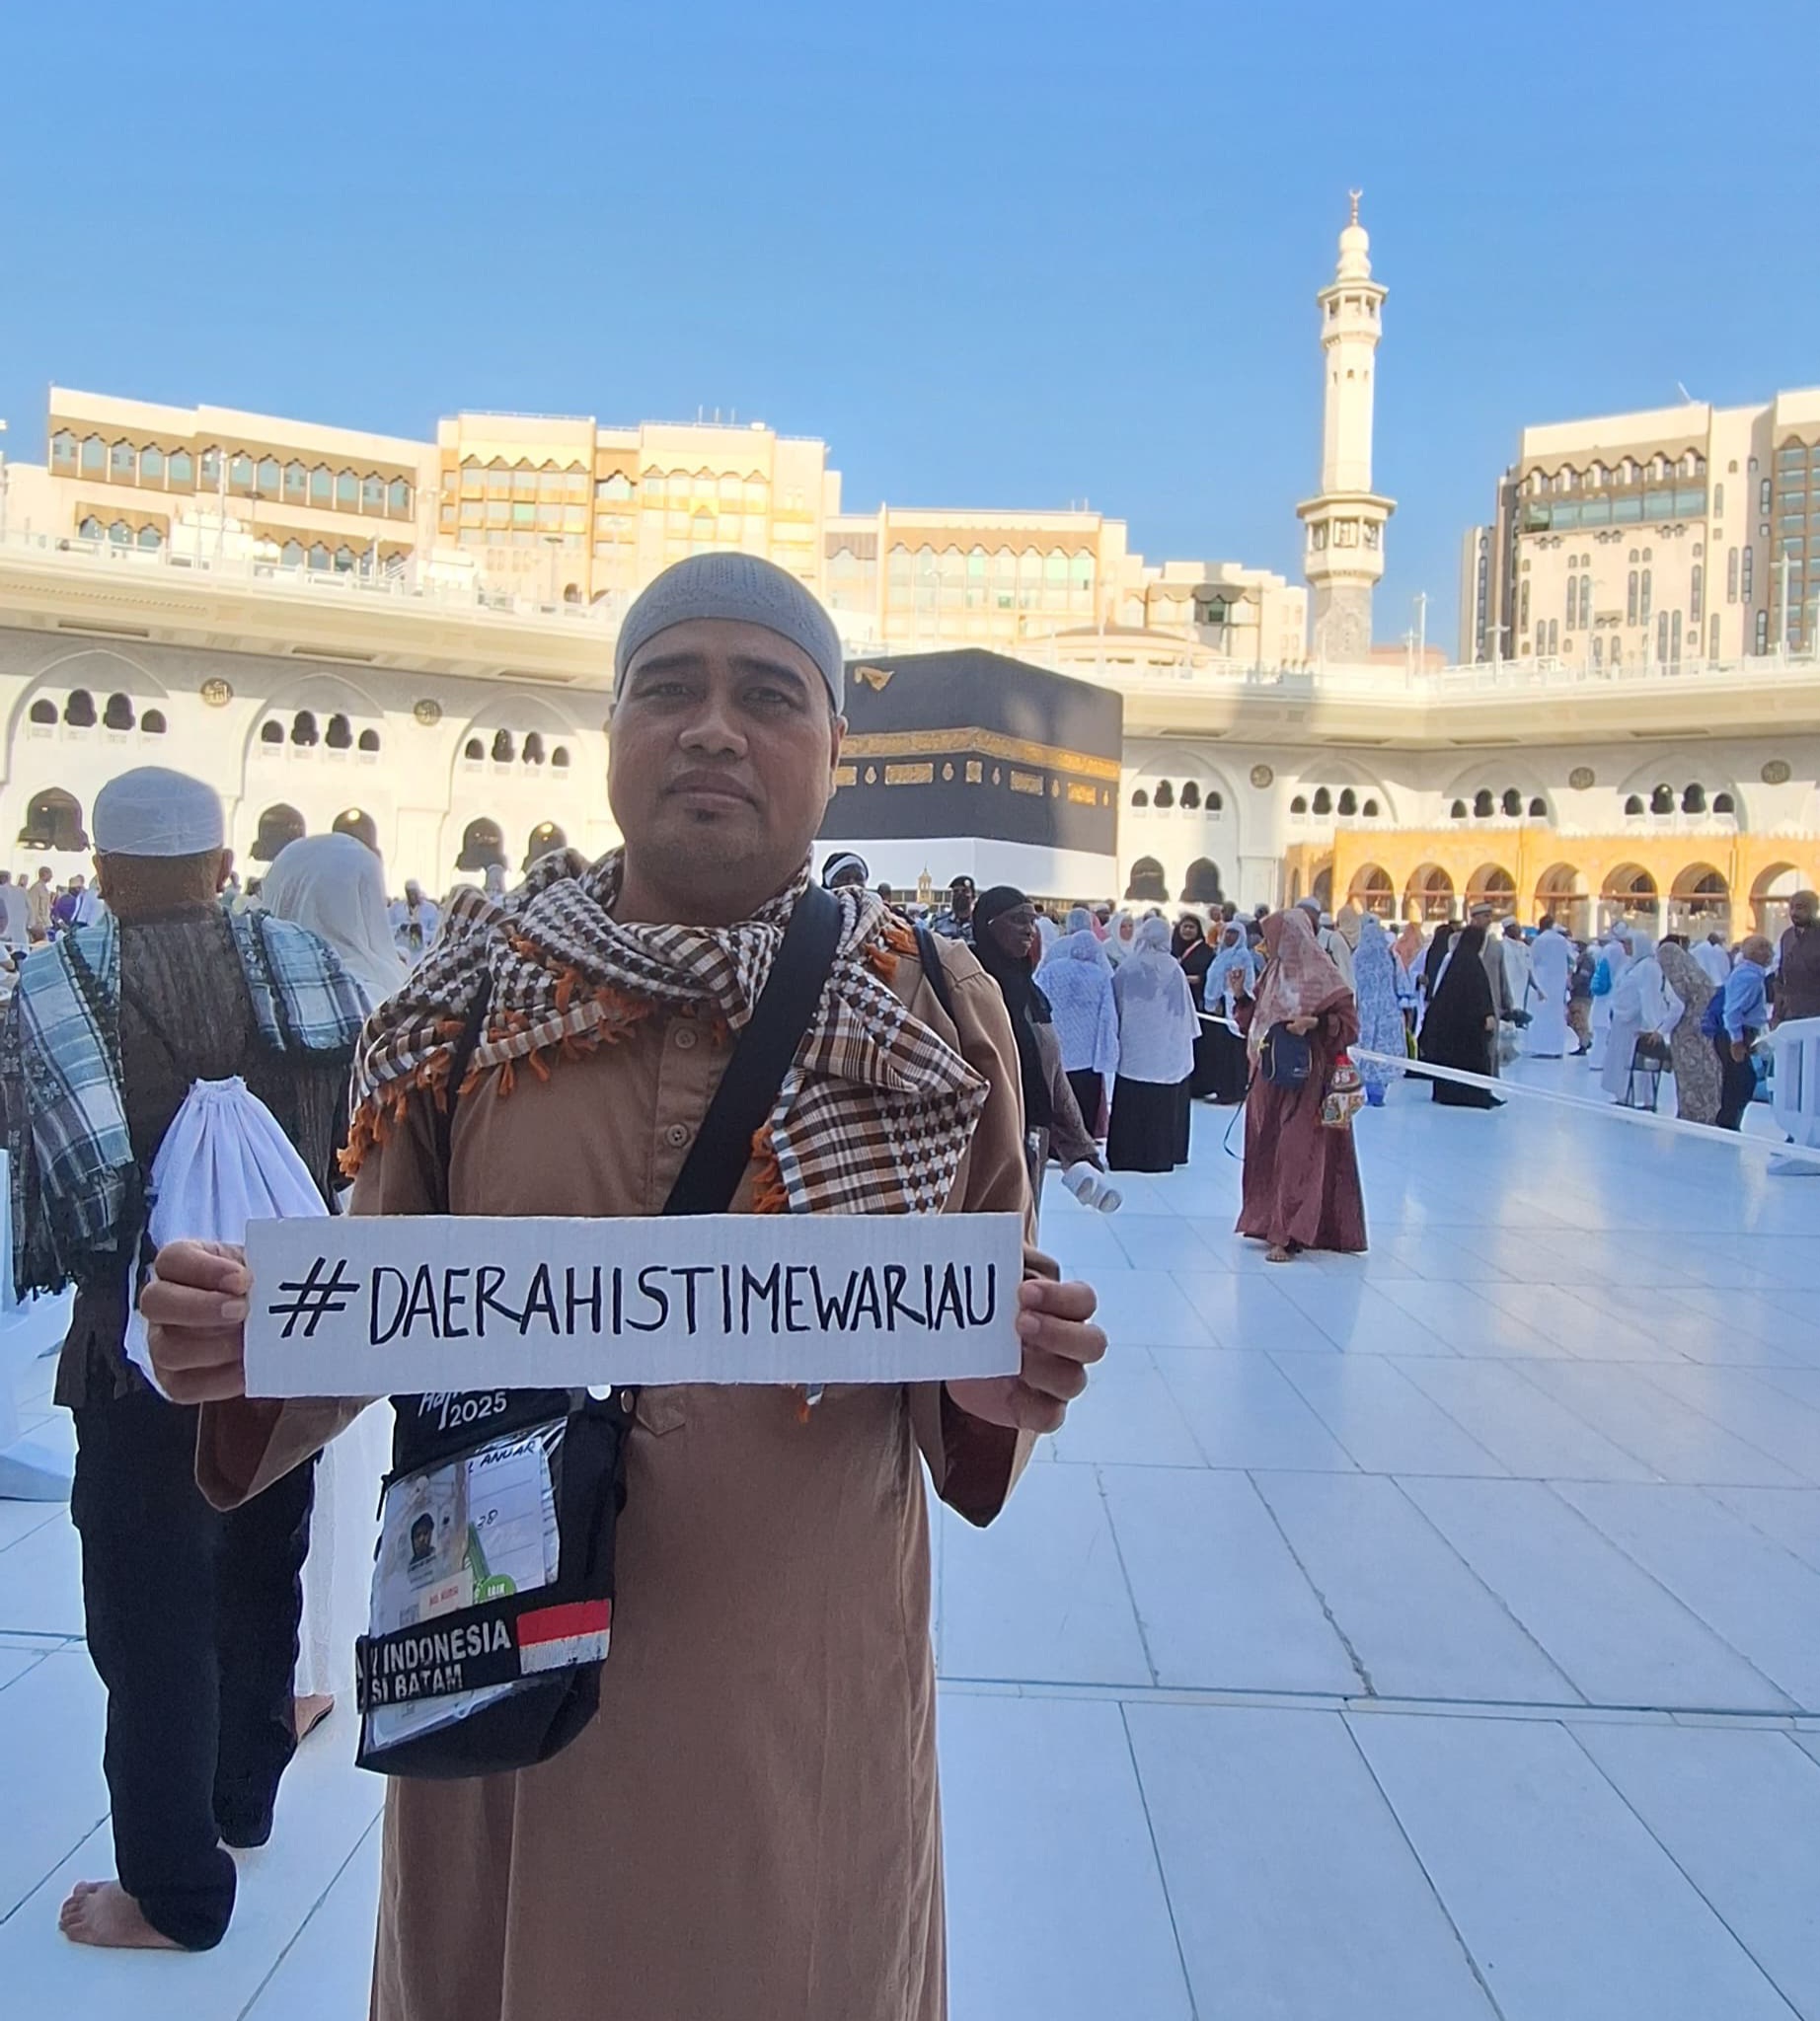 #DAERAHISTIMEWARIAU
2025
ANUAR
28
INDONESIA
SI BATAM